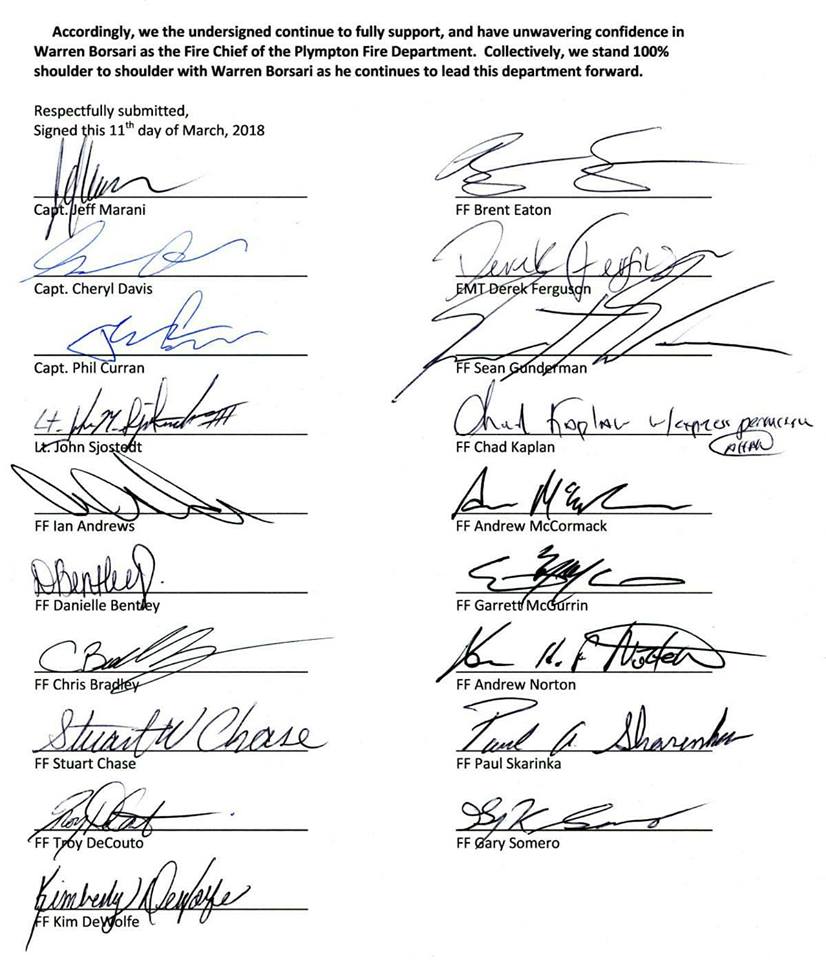 Accordingly, we the undersigned continue to fully support, and have unwavering confidence in
Warren Borsari as the Fire Chief of the Plympton Fire Department. Collectively, we stand 100%
shoulder to shoulder with Warren Borsari as he continues to lead this department forward.
Respectfully submitted,
Signed this 11th day of March, 2018
Capt. Jeff Marani
Capt. Cheryl Davis
Capt. Phil Curran
Lt.
Lt. John Sjostedt
FF Ian Andrews
D Bentley
FF Danielle Bentley
FF Chris Bradley
Stuart W Chase
FF Stuart Chase
FF Troy DeCouto
Kimberly DeWolfe
FF Kim DeWolfe
FF Brent Eaton
Derek Ferguson
EMT Derek Ferguson
FF Sean Gunderman
Chad Kaplan w/express permission
FF Chad Kaplan
FF Andrew McCormack
FF Garrett McGurrin
Norton
FF Andrew Norton
Paul A. Skarinka
FF Paul Skarinka
FF Gary Somero